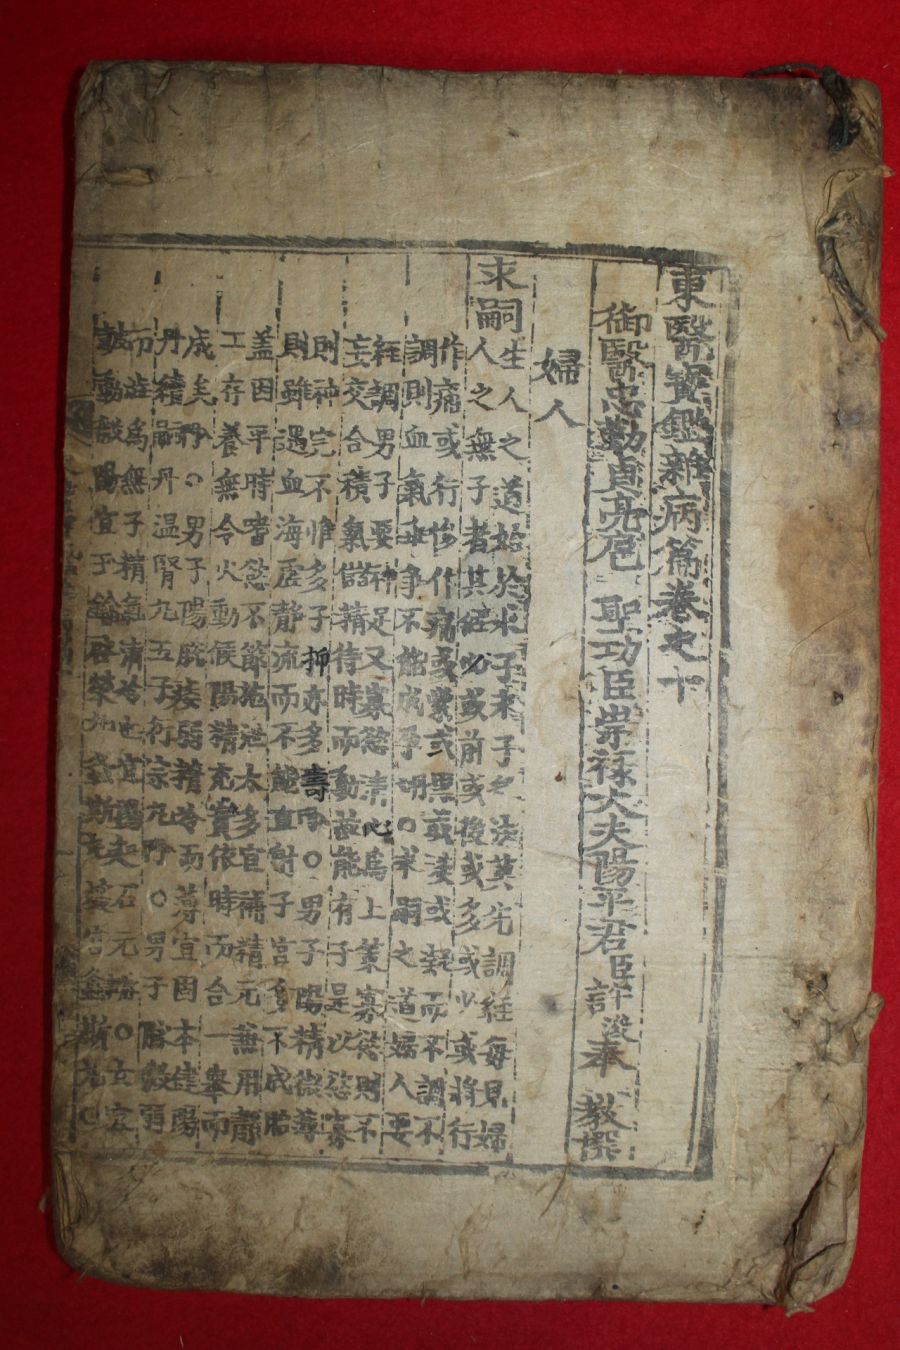 東醫寶鑑雜病篇卷之十
御醫忠勤貞亮扈 聖功臣崇祿大夫陽平君臣許浚奉 教撰
婦人
求嗣
生人之道始於求子求子之法莫先調經每見婦
人之無子者其經必或前或後或多或少或將行
作痛或行後作痛或紫或黑或淡或凝而不調不
調則血氣乖爭不能成孕○求嗣之道婦人要
經調男子要神足又寡慾淸心爲上策寡慾則不
妄交合積氣儲精待時而動故能有子是以慾寡
則神完不惟多子抑亦多壽○男子陽精微薄
則雖遇血海虛靜流而不能直射子宮多不成胎
盖因平時嗜慾不節施泄太多宜補精元兼用靜
工存養無令火動候陽精充實依時而合一擧而
成矣○男子陽脫痿弱精冷而薄宜固本健陽
丹續嗣丹溫腎丸五子衍宗丸○男子脉微弱
而澁爲無子精氣淸冷也宜陽起石元○
螽斯丸○